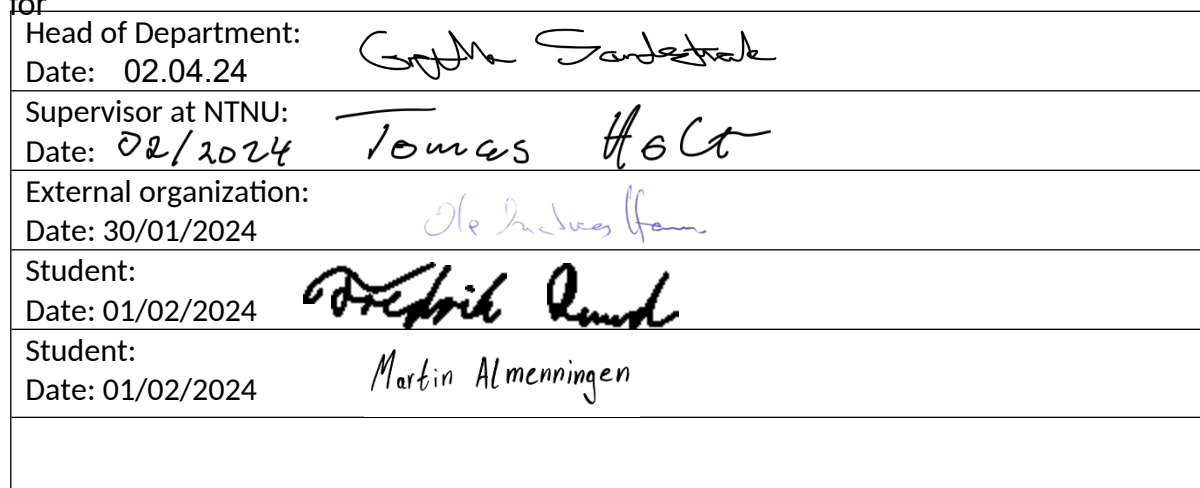 for
Head of Department:
Date: 02.04.24
Supervisor at NTNU:
Date: 02/2024 Tomas Holt
External organization:
Date: 30/01/2024 Ole
Student:
Date: 01/02/2024 Fredrik
Student:
Date: 01/02/2024 Martin Almenningen